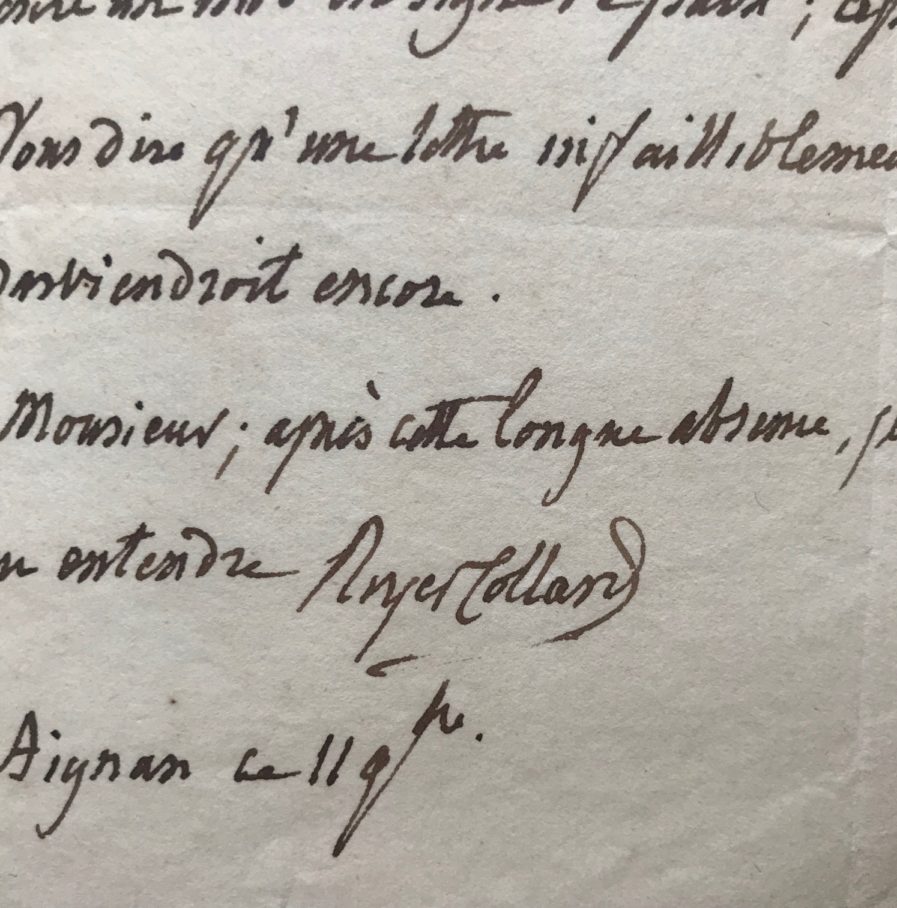 Vous dire qu'une lettre infailliblemen
parviendroit encore.
Monsieur; après cette longue absence, je
entendre Royer Collard
Aignan ce 11 9bre.